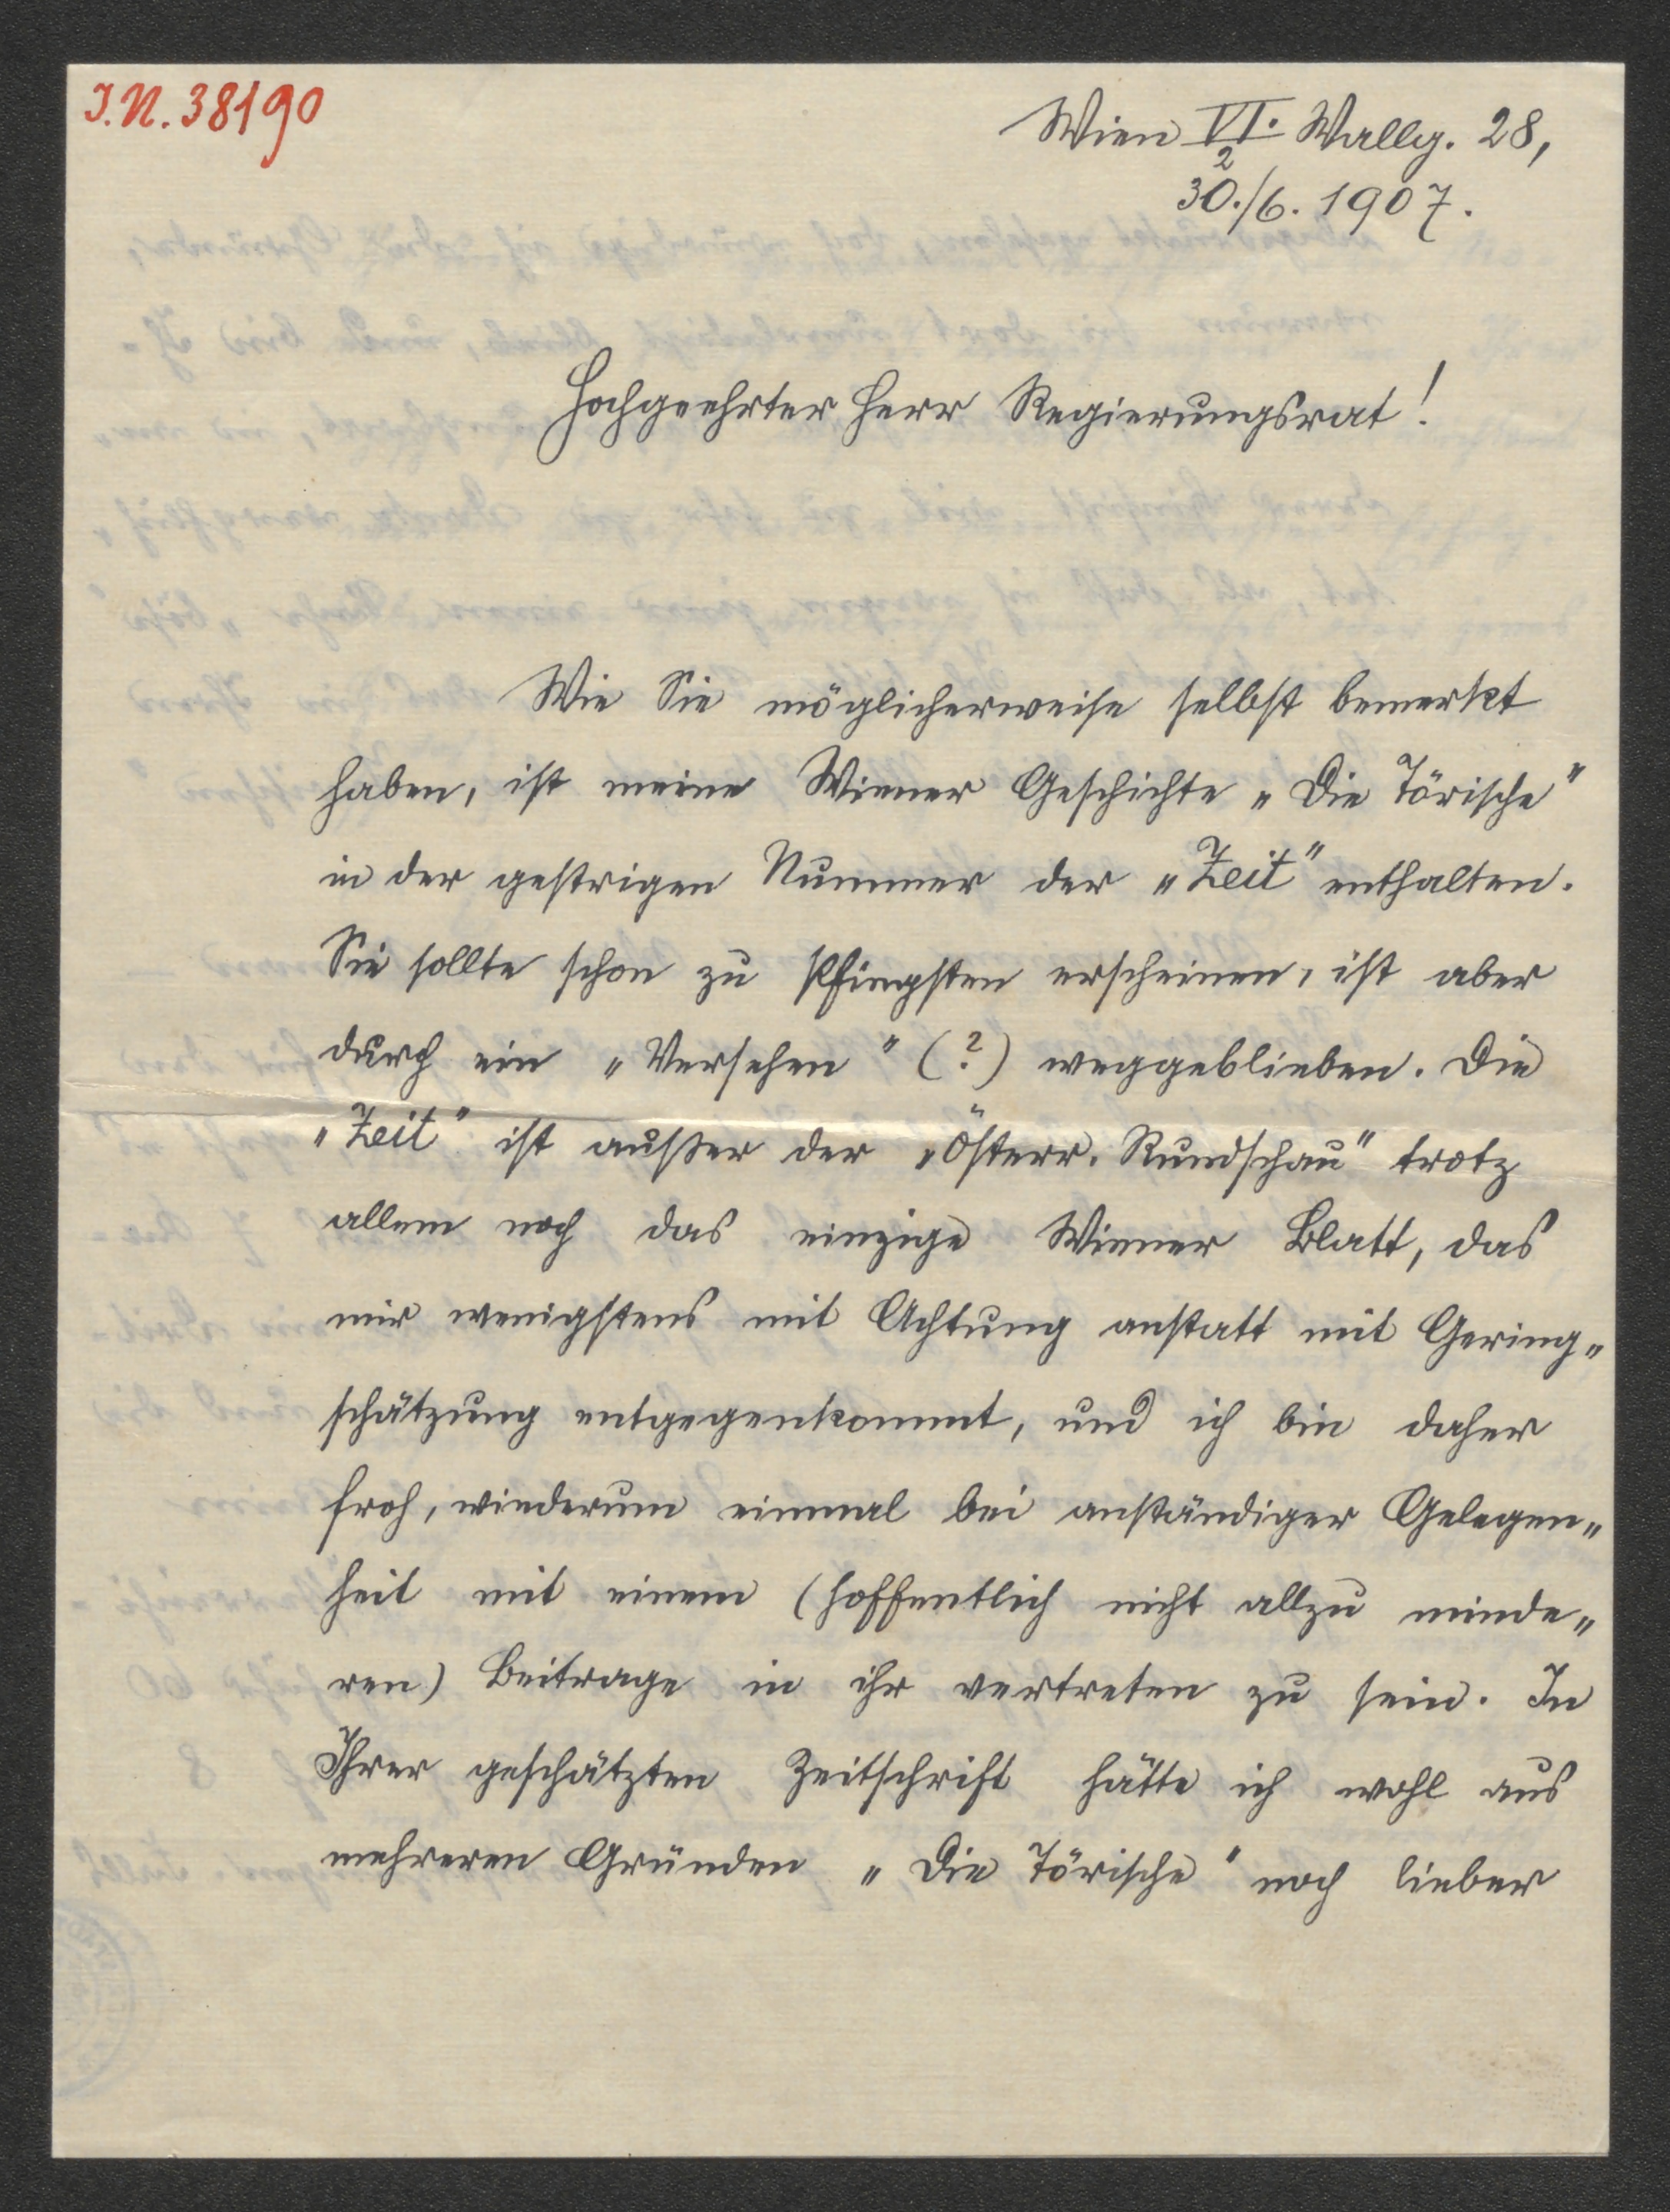 I.N. 38190
Wien VI./2 Wallg. 28,
30./6. 1907.
Hochgeehrter Herr Regierungsrat!
Wie Sie möglicherweise selbst bemerkt
haben, ist meine Wiener Geschichte „Die Törische"
in der gestrigen Nummer der „Zeit" enthalten.
Sie sollte schon zu Pfingsten erscheinen, ist aber
durch ein „Versehen" (?) weggeblieben. Die
„Zeit" ist außer der „Österr. Rundschau" trotz
allem noch das einzige Wiener Blatt, das
mir wenigstens mit Achtung anstatt mit Gering-
schätzung entgegenkommt, und ich bin daher
froh, wiederum einmal bei anständiger Gelegen-
heit mit einem (hoffentlich nicht allzu minde-
ren) Beitrage in ihr vertreten zu sein. In
Ihrer geschätzten Zeitschrift hätte ich wohl aus
mehreren Gründen „Die Törische" noch lieber